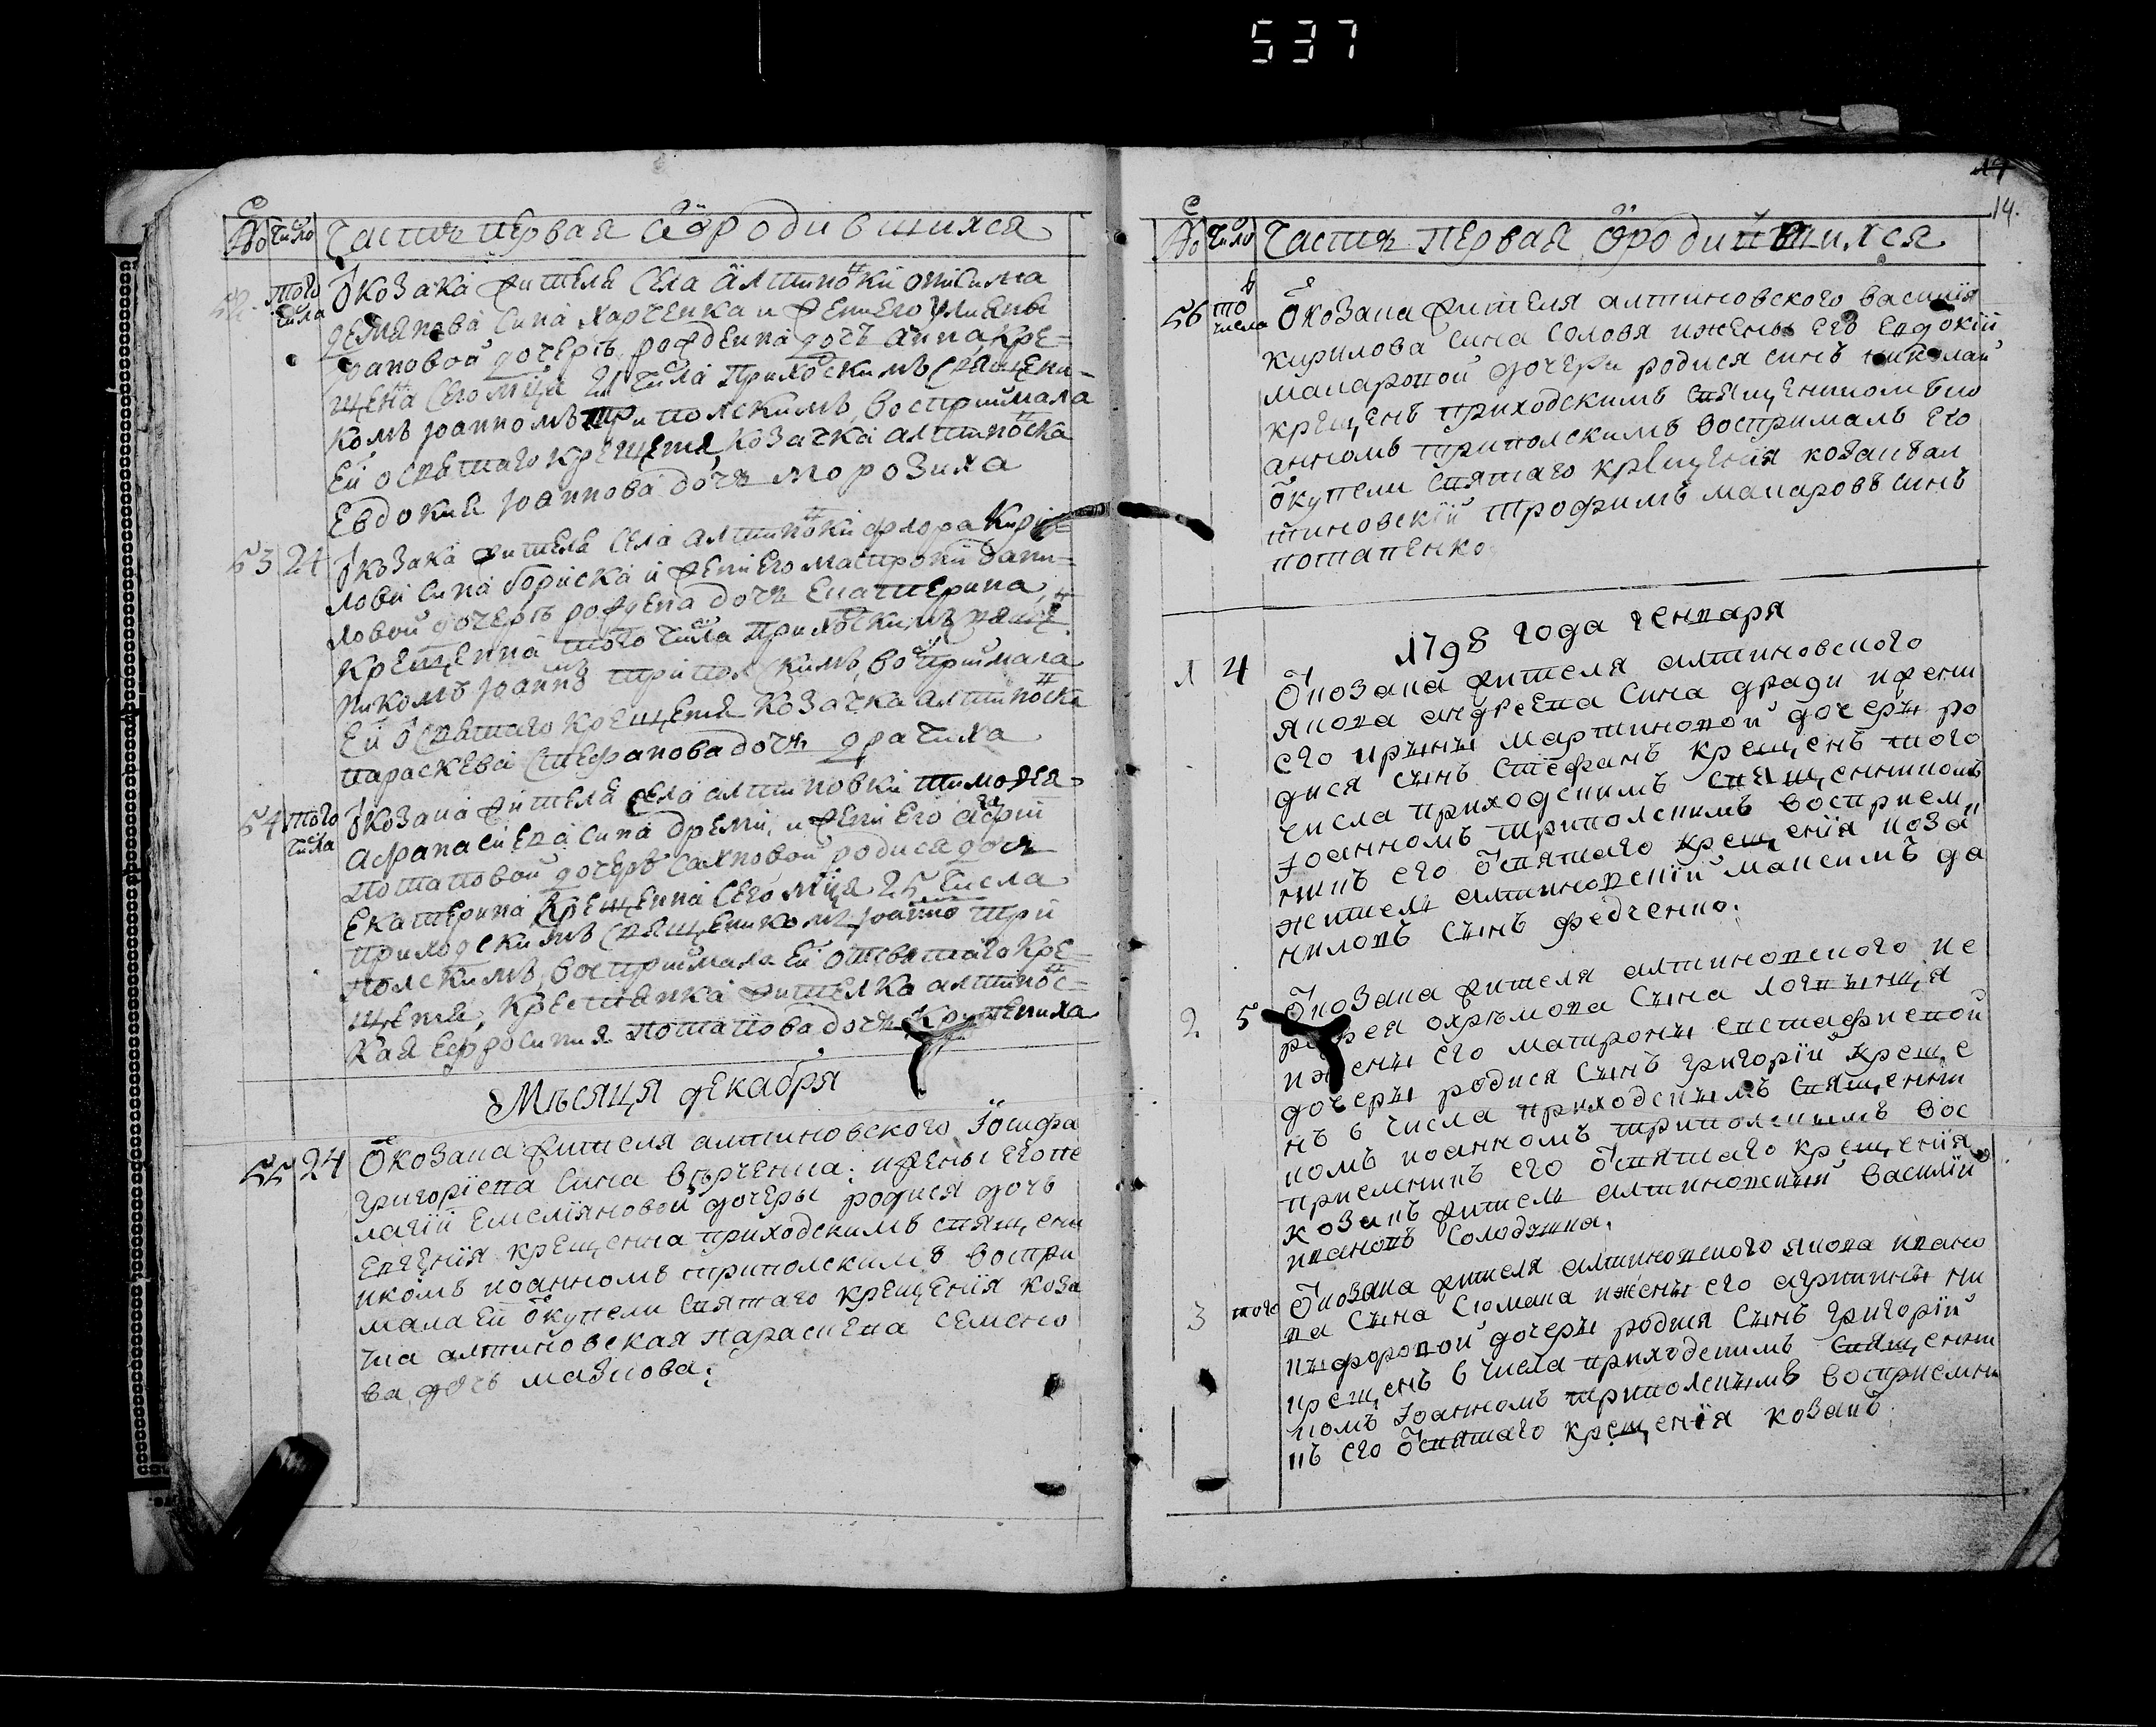 537
№ число Часть первая ѿ родившихся
52 того числа Ѿ козака жителя села Алтиновки Онисима
Демянова сина Харченка и жени его Улияны
Іоановой дочерѣ рожденна дочъ Анна кре=
щена сего мца 21 числа приходскимъ священи=
комъ Іоанномъ Триполскимъ, восприймала
ей ѿ святаго крещения козачка алтиновска
Евдокия Іоаннова дочъ Морозиха
53 24 Ѿ козака жителя села Алтиновки Флора Кири=
лова сина Бориска и жени его Матрони Дани=
ловой дочерѣ рождена дочъ Екатерина,
крещенна того числа приходскимъ свяще
никомъ Іоанномъ Триполскимъ, восприймала
ей ѿ святаго крещения козачка алтиновска
Параскева Стефанова дочъ Драчиха
54 того числа Ѿ козака жителя села Алтиновки Тимофея
Афанасиева сина Дреми, и жени его Агафии
Потаповой дочерѣ родися дочъ
Екатерина крещенна сего мца 25 числа
приходскимъ священикомъ Іоанно Три
полскимъ, восприймала ей ѿ святаго кре=
щения, крестянка жителка алтиновс=
кая Ефросиния Потапова дочъ
Мѣсяця декабря
55 24 Ѿ козака жителя алтиновского Іосифа
Григоріева сина и жены его Пе
лагіи Емеліяновой дочеры родися дочь
Евгенія крещенна приходскимъ священи
комъ Иоанномъ Триполскимъ воспри
мала ей ѿ купели святаго крещенія коза
чка алтиновская Параскева Семено
ва дочь Мазнова:
14.
№ число Часть первая ѿ родившихся
56 то числа Ѿ козака жителя алтиновского Василія
Кирилова сина Соловя и жены его Евдокіи
Макаровой дочери родися синъ Николай
крещенъ приходскимъ священикомъ Ио
анномъ Триполскимъ вострималъ его
ѿ купели святаго крещенія козакъ ал
тиновскій Трофимъ Макаровъ синъ
Потапенко
1798 года генваря
1 4 Ѿ козака жителя алтиновского
Якова Андреева сина Драги и жени
его Ирыны Мартиновой дочеры ро
дися сынъ Стефанъ крещенъ того
числа приходскимъ священникомъ
Іоанномъ Триполскимъ восприем,
никъ его ѿ святаго крещенія коза
житель алтиновскій Максимъ Да
ниловъ сынъ Федченко.
2 5 Ѿ козака жителя алтиновского Не
Охрѣмова сына
и жены его Матроны Евстафиевой
дочеры родися сынъ Григорій креще
нъ 6 числа приходскимъ священни
комъ Иоанномъ Триполскимъ вос
приемникъ его ѿ святаго крещенія
козакъ житель алтиновскій Василій
Ивановъ Солодушка.
3 того Ѿ козака жителя алтиновского Якова Ивано
ва сына Сюмака и жены его Агрипины Ни
кыфоровой дочеры родися сынъ Григорій
крещенъ 6 числа приходскимъ священни
комъ Іоанномъ Триполскымъ восприемни
къ его ѿ святаго крещенія козакъ